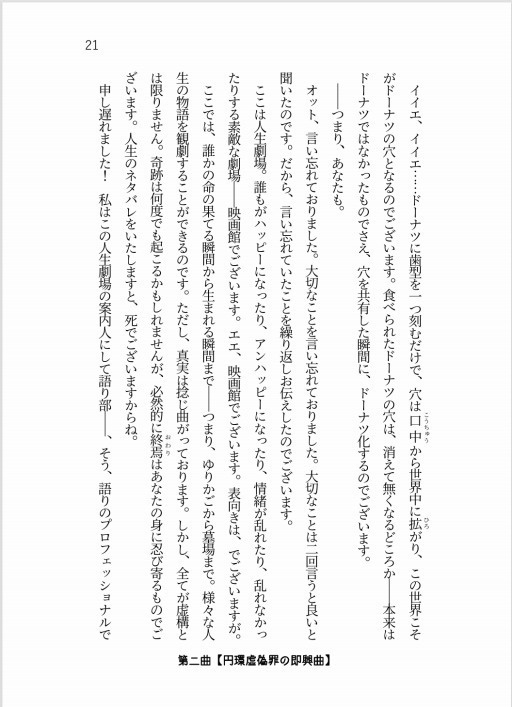 21
イイエ、イイエ……ドーナツに歯型を一つ刻むだけで、穴は口中から世界中に拡がり、この世界こそ
こうちゅう
ひろ
がドーナツの穴となるのでございます。食べられたドーナツの穴は、消えて無くなるどころか――本来は
ドーナツではなかったものでさえ、穴を共有した瞬間に、ドーナツ化するのでございます。
――つまり、あなたも。
オット、言い忘れておりました。大切なことを言い忘れておりました。大切なことは二回言うと良いと
聞いたのです。だから、言い忘れていたことを繰り返しお伝えしたのでございます。
ここは人生劇場。誰もがハッピーになったり、アンハッピーになったり、情緒が乱れたり、乱れなかっ
たりする素敵な劇場――映画館でございます。エエ、映画館でございます。表向きは、でございますが。
ここでは、誰かの命の果てる瞬間から生まれる瞬間まで――つまり、ゆりかごから墓場まで。様々な人
生の物語を観劇することができるのです。ただし、真実は捻じ曲がっております。しかし、全てが虚構と
は限りません。奇跡は何度でも起こるかもしれませんが、必然的に終焉はあなたの身に忍び寄るものでご
おわり
ざいます。人生のネタバレをいたしますと、死でございますからね。
申し遅れました！　私はこの人生劇場の案内人にして語り部――、そう、語りのプロフェッショナルで
第二曲【円環虚偽罪の即興曲】